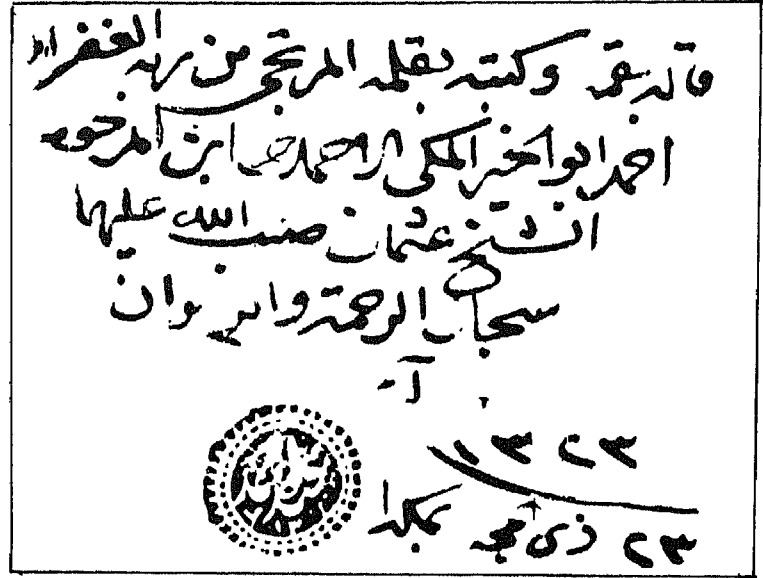 قاله بفمه وكتبه بقلمه المرتجى من ربه الغفران
احمد ابو الخير المكي الاحمدي ابن المرحوم
الشيخ عثمان صب الله عليهما
سجال الرحمة والرضوان
١٣٢٣
٢٣ ذى الحجه